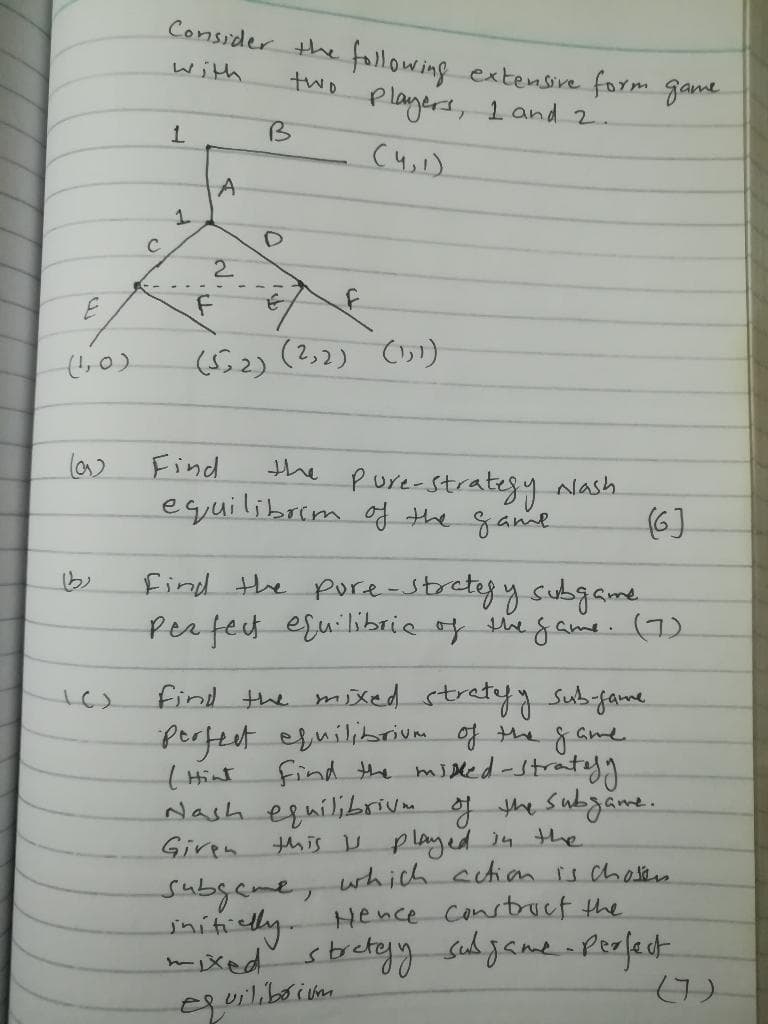 Consider the following extensive form game
with two players, 1 and 2.
1 B (4,1)
A
1
C D
2
E F E F
(1,0) (5,2) (2,2) (1,1)
(a) Find the pure-strategy Nash
equilibrim of the game [6]
(b) Find the pure-strategy subgame
perfect equilibria of the game. (7)
(c) find the mixed strategy sub-game
perfect equilibrium of the game
(Hint find the mixed-strategy
Nash equilibrium of the subgame.
Given this is played in the
subgame, which action is chosen
initially. Hence construct the
mixed strategy subgame-perfect
equilibrium (7)